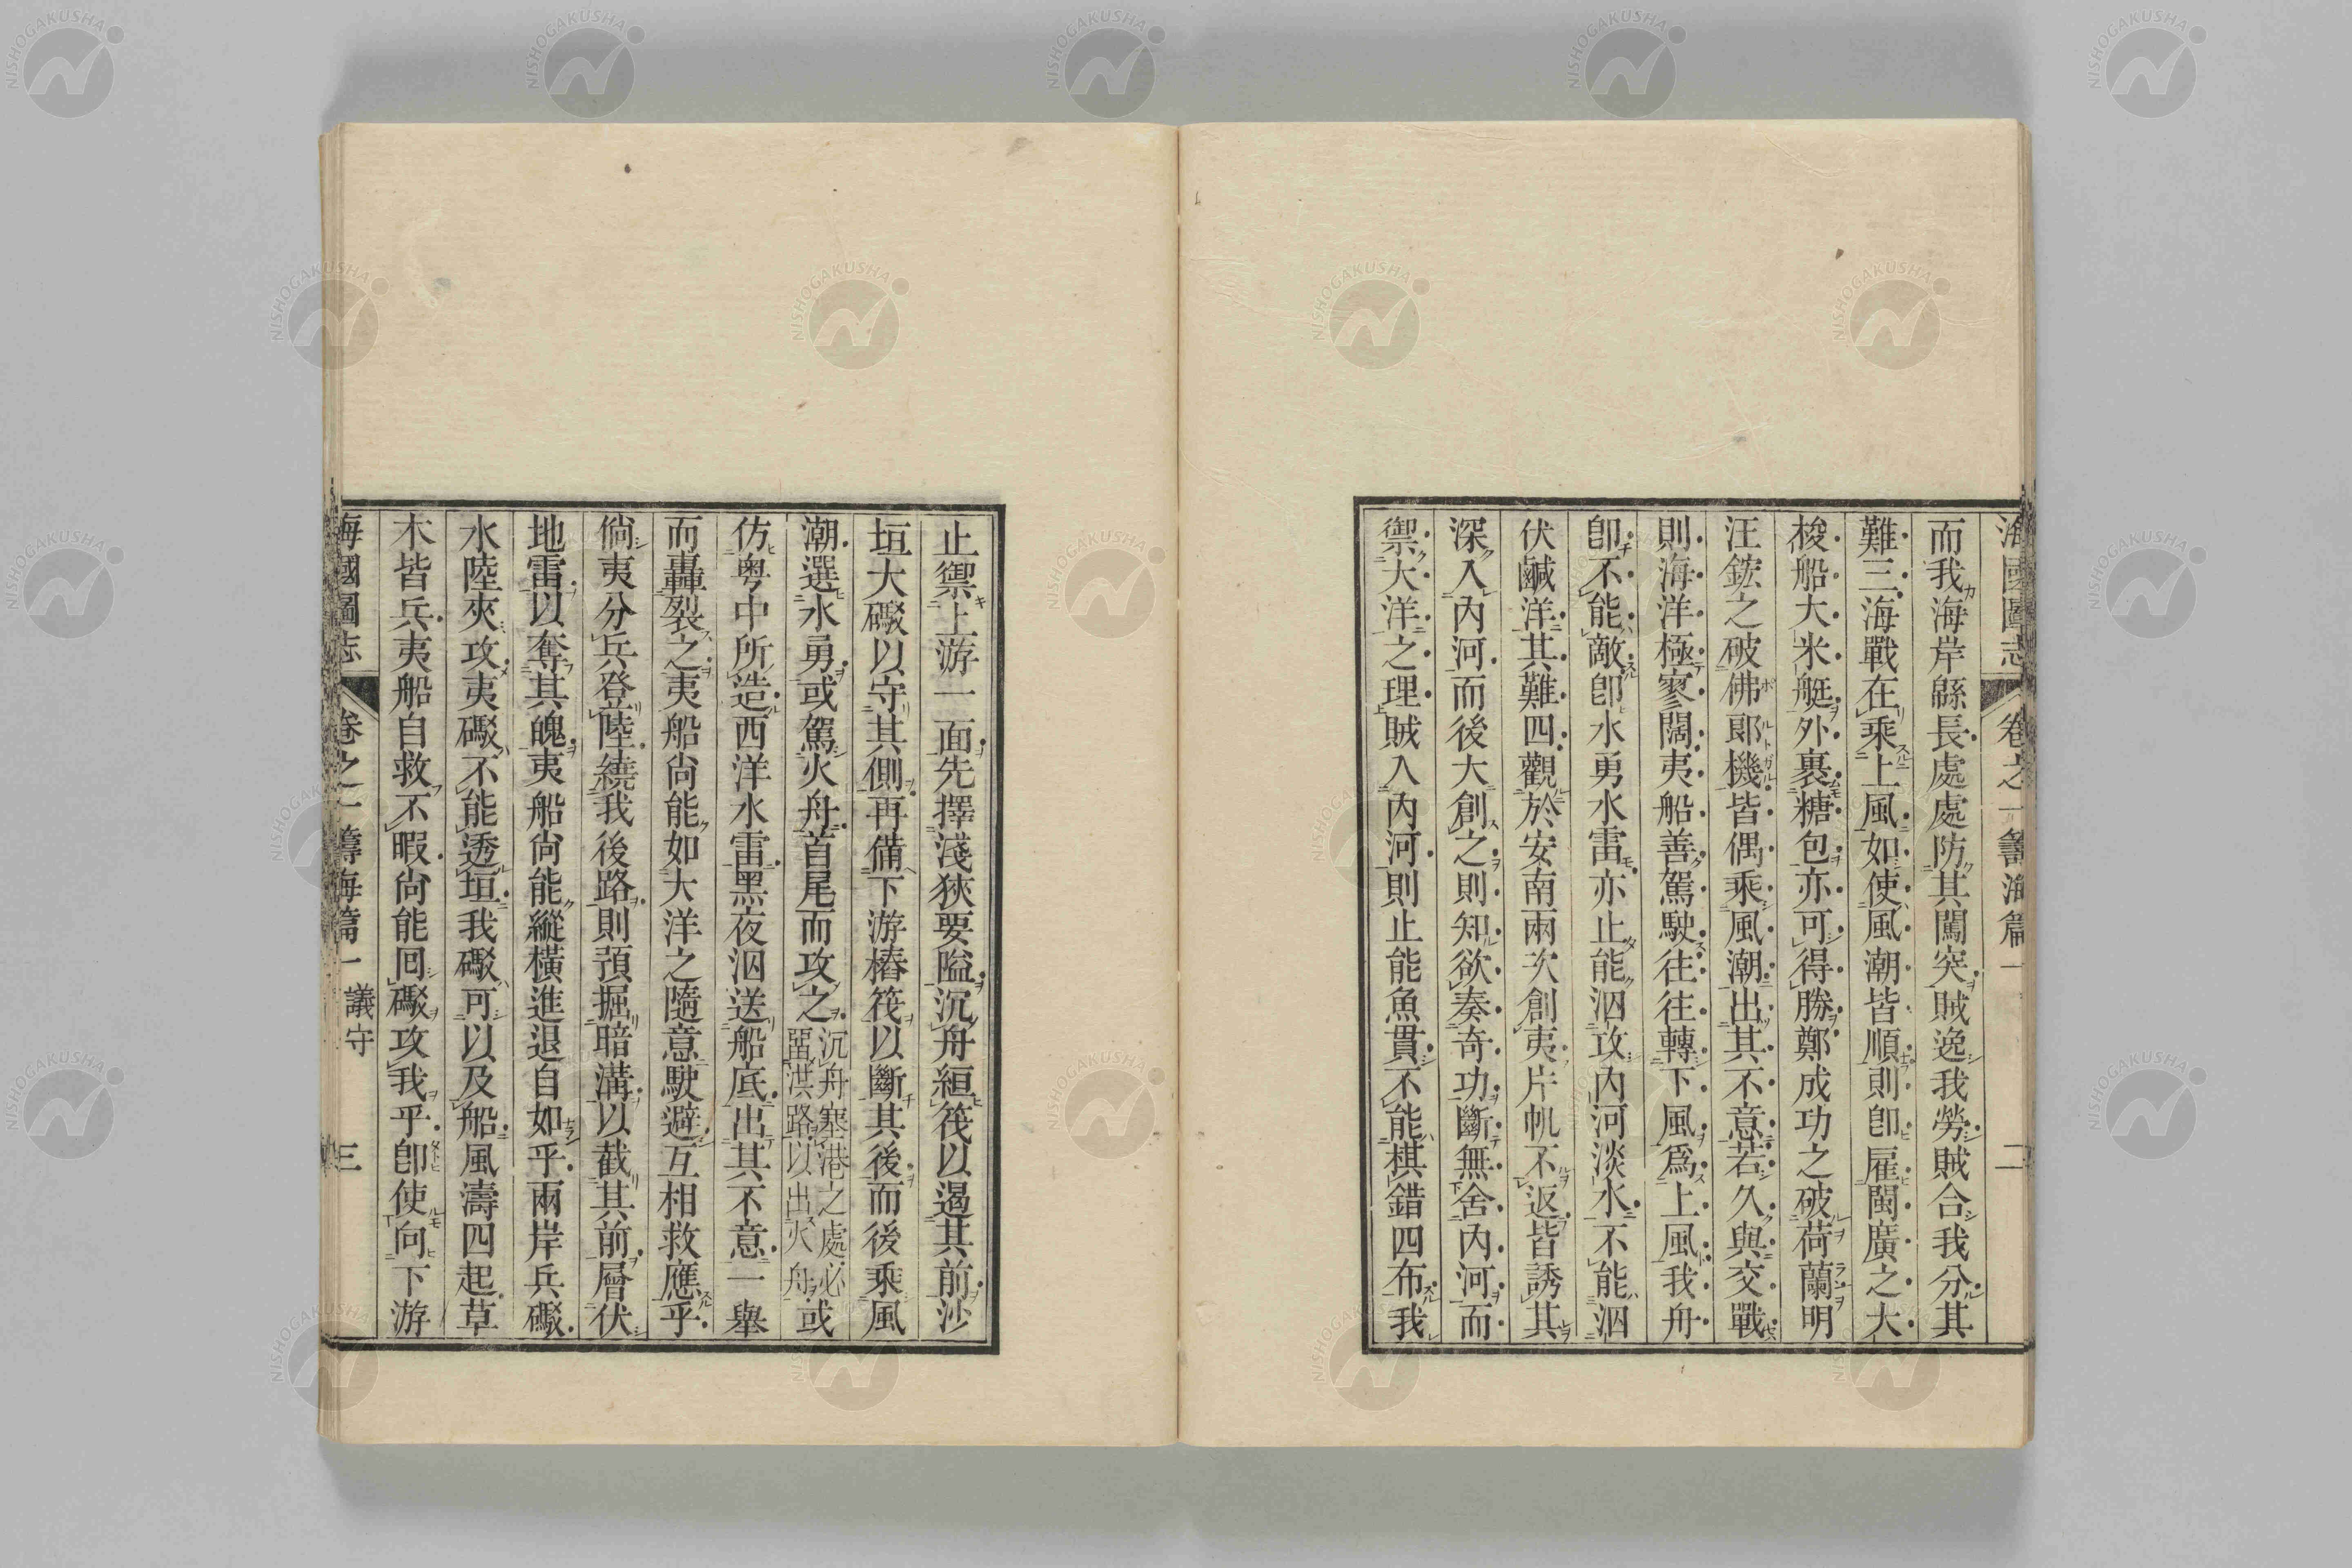 海國圖志 卷之一 籌海篇一 二
而我海岸緜長處處防其闖突賊逸我勞賊合我分其
難三海戰在乘上風如使風潮皆順則卽雇閩廣之大
梭船大米艇外裹糖包亦可得勝鄭成功之破荷蘭明
汪鋐之破佛郞機皆偶乘風潮出其不意若久與交戰
則海洋極寥闊夷船善駕駛往往轉下風爲上風我舟
卽不能敵卽水勇水雷亦止能泅攻內河淡水不能泅
伏鹹洋其難四觀於安南兩次創夷片帆不返皆誘其
深入內河而後大創之則知欲奏奇功斷無舍內河而
禦大洋之理賊入內河則止能魚貫不能棋錯四布我
止禦上游一面先擇淺狹要隘沉舟絙筏以遏其前沙
垣大礮以守其側再備下游樁筏以斷其後而後乘風
潮選水勇或駕火舟首尾而攻之沉舟塞港之處必留洪路以出火舟或
仿粤中所造西洋水雷黑夜泅送船底出其不意一舉
而轟裂之夷船尙能如大洋之隨意駛避互相救應乎
倘夷分兵登陸繞我後路則預掘暗溝以截其前層伏
地雷以奪其魄夷船尙能縱橫進退自如乎兩岸兵礮
水陸夾攻夷礮不能透垣我礮可以及船風濤四起草
木皆兵夷船自救不暇尙能回礮攻我乎卽使向下游
海國圖志 卷之一 籌海篇一 議守 三
NISHOGAKUSHA